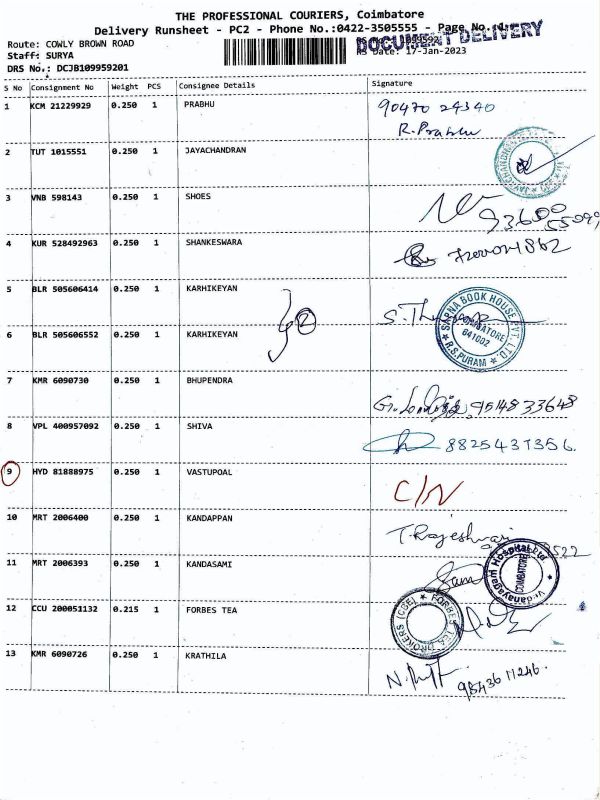 THE PROFESSIONAL COURIERS, Coimbatore
Delivery Runsheet - PC2 - Phone No.:0422-3505555 - Page No.:1
DOCUMENT DELIVERY
Route: COWLY BROWN ROAD
Staff: SURYA
RS Date: 17-Jan-2023
DRS No.: DCJB109959201
S No Consignment No Weight PCS Consignee Details Signature
1 KCM 21229929 0.250 1 PRABHU 90470 24340
R. Prabhu
2 TUT 1015551 0.250 1 JAYACHANDRAN
3 VNB 598143 0.250 1 SHOES 93600
55099
4 KUR 528492963 0.250 1 SHANKESWARA
5 BLR 505606414 0.250 1 KARHIKEYAN
2
SAPNA BOOK HOUSE PVT. LTD.
COIMBATORE
641002
R.S. PURAM
6 BLR 505606552 0.250 1 KARHIKEYAN
7 KMR 6090730 0.250 1 BHUPENDRA 9514833648
8 VPL 400957092 0.250 1 SHIVA 8825431356.
9 HYD 81888975 0.250 1 VASTUPOAL C/N
10 MRT 2006400 0.250 1 KANDAPPAN T. Rajeshwari
11 MRT 2006393 0.250 1 KANDASAMI
Hospital Ltd
COIMBATORE
12 CCU 200051132 0.215 1 FORBES TEA
FORBES TEA BROKERS (CBE)
13 KMR 6090726 0.250 1 KRATHILA 9843611246.